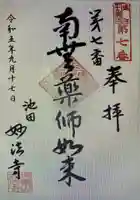 奉拝
第七番
第七番
南無薬師如来
池田
妙法寺
令和五年九月十七日